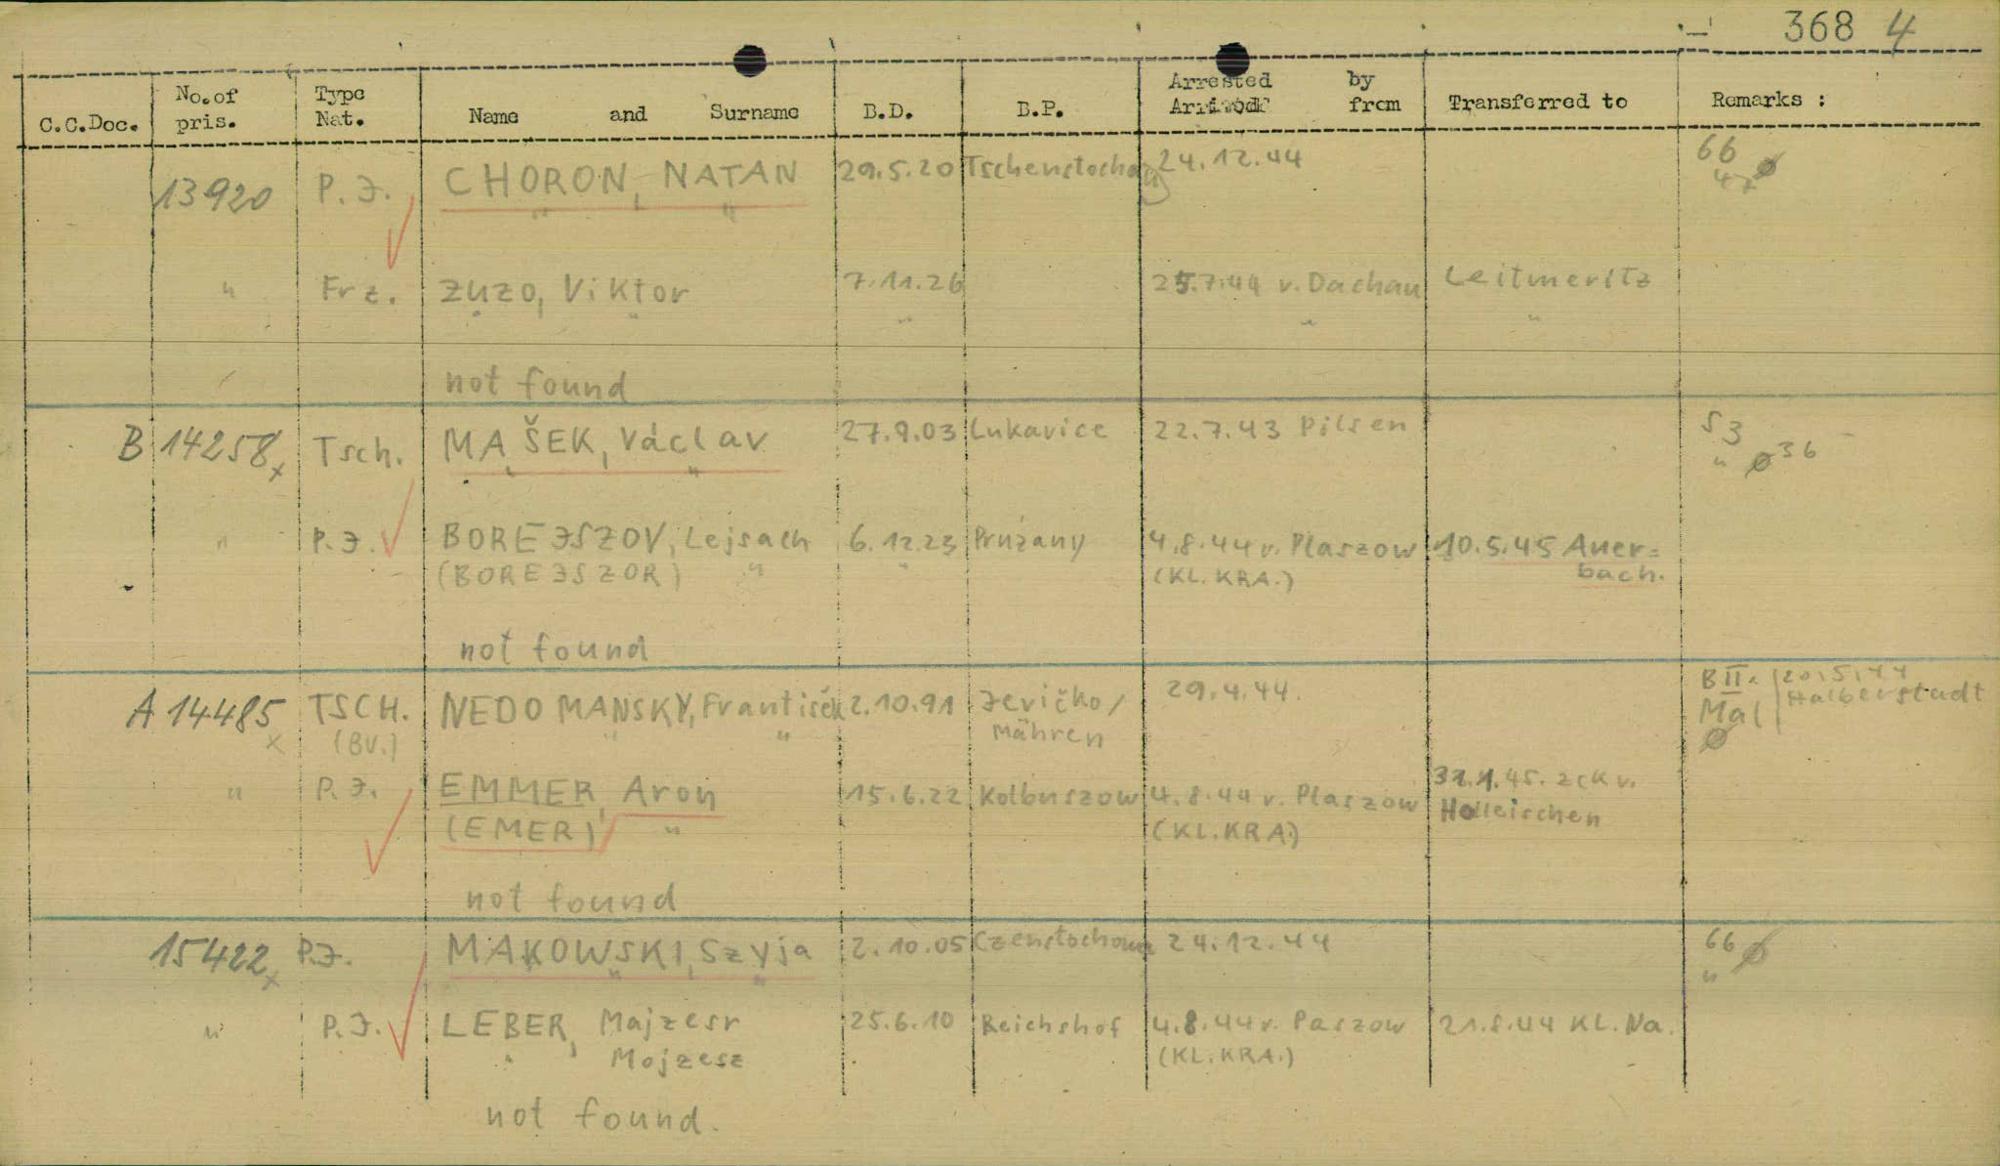 368 4
C.C.Doc. No.of pris. Type Nat. Name and Surname B.D. B.P. Arrested by Arrived from Transferred to Remarks :
13920 P.J. CHORON, NATAN 29.5.20 Tschenstochau 24.12.44 66
" Frz. Zuzo, Viktor 7.11.26 25.7.44 v. Dachau Leitmeritz
not found
B 14258 x Tsch. MAŠEK, Václav 27.9.03 Lukavice 22.7.43 Pilsen 53
" ø 36
" P.J. BOREJSZOV, Lejsach 6.12.23 Prużany 4.8.44 v. Plaszow 10.5.45 Auer=
(BOREJSZOR) " (KL.KRA.) bach.
not found
A 14485 x TSCH. NEDOMANSKY, František 2.10.91 Jevičko/ 29.4.44. BII. 20.5.44
(BV.) Mähren Mal Halberstadt
ø
" P.J. EMMER, Aron 15.6.22 Kolbuszow 4.8.44 v. Plaszow 31.1.45. zck v.
(EMER) " (KL.KRA) Holleischen
not found
15422 x P.J. MAKOWSKI, Szyja 2.10.05 Czenstochowa 24.12.44 66 ø
"
" P.J. LEBER, Majzesr 25.6.10 Reichshof 4.8.44 v. Paszow 21.8.44 KL.Na.
Mojzesz (KL.KRA.)
not found.